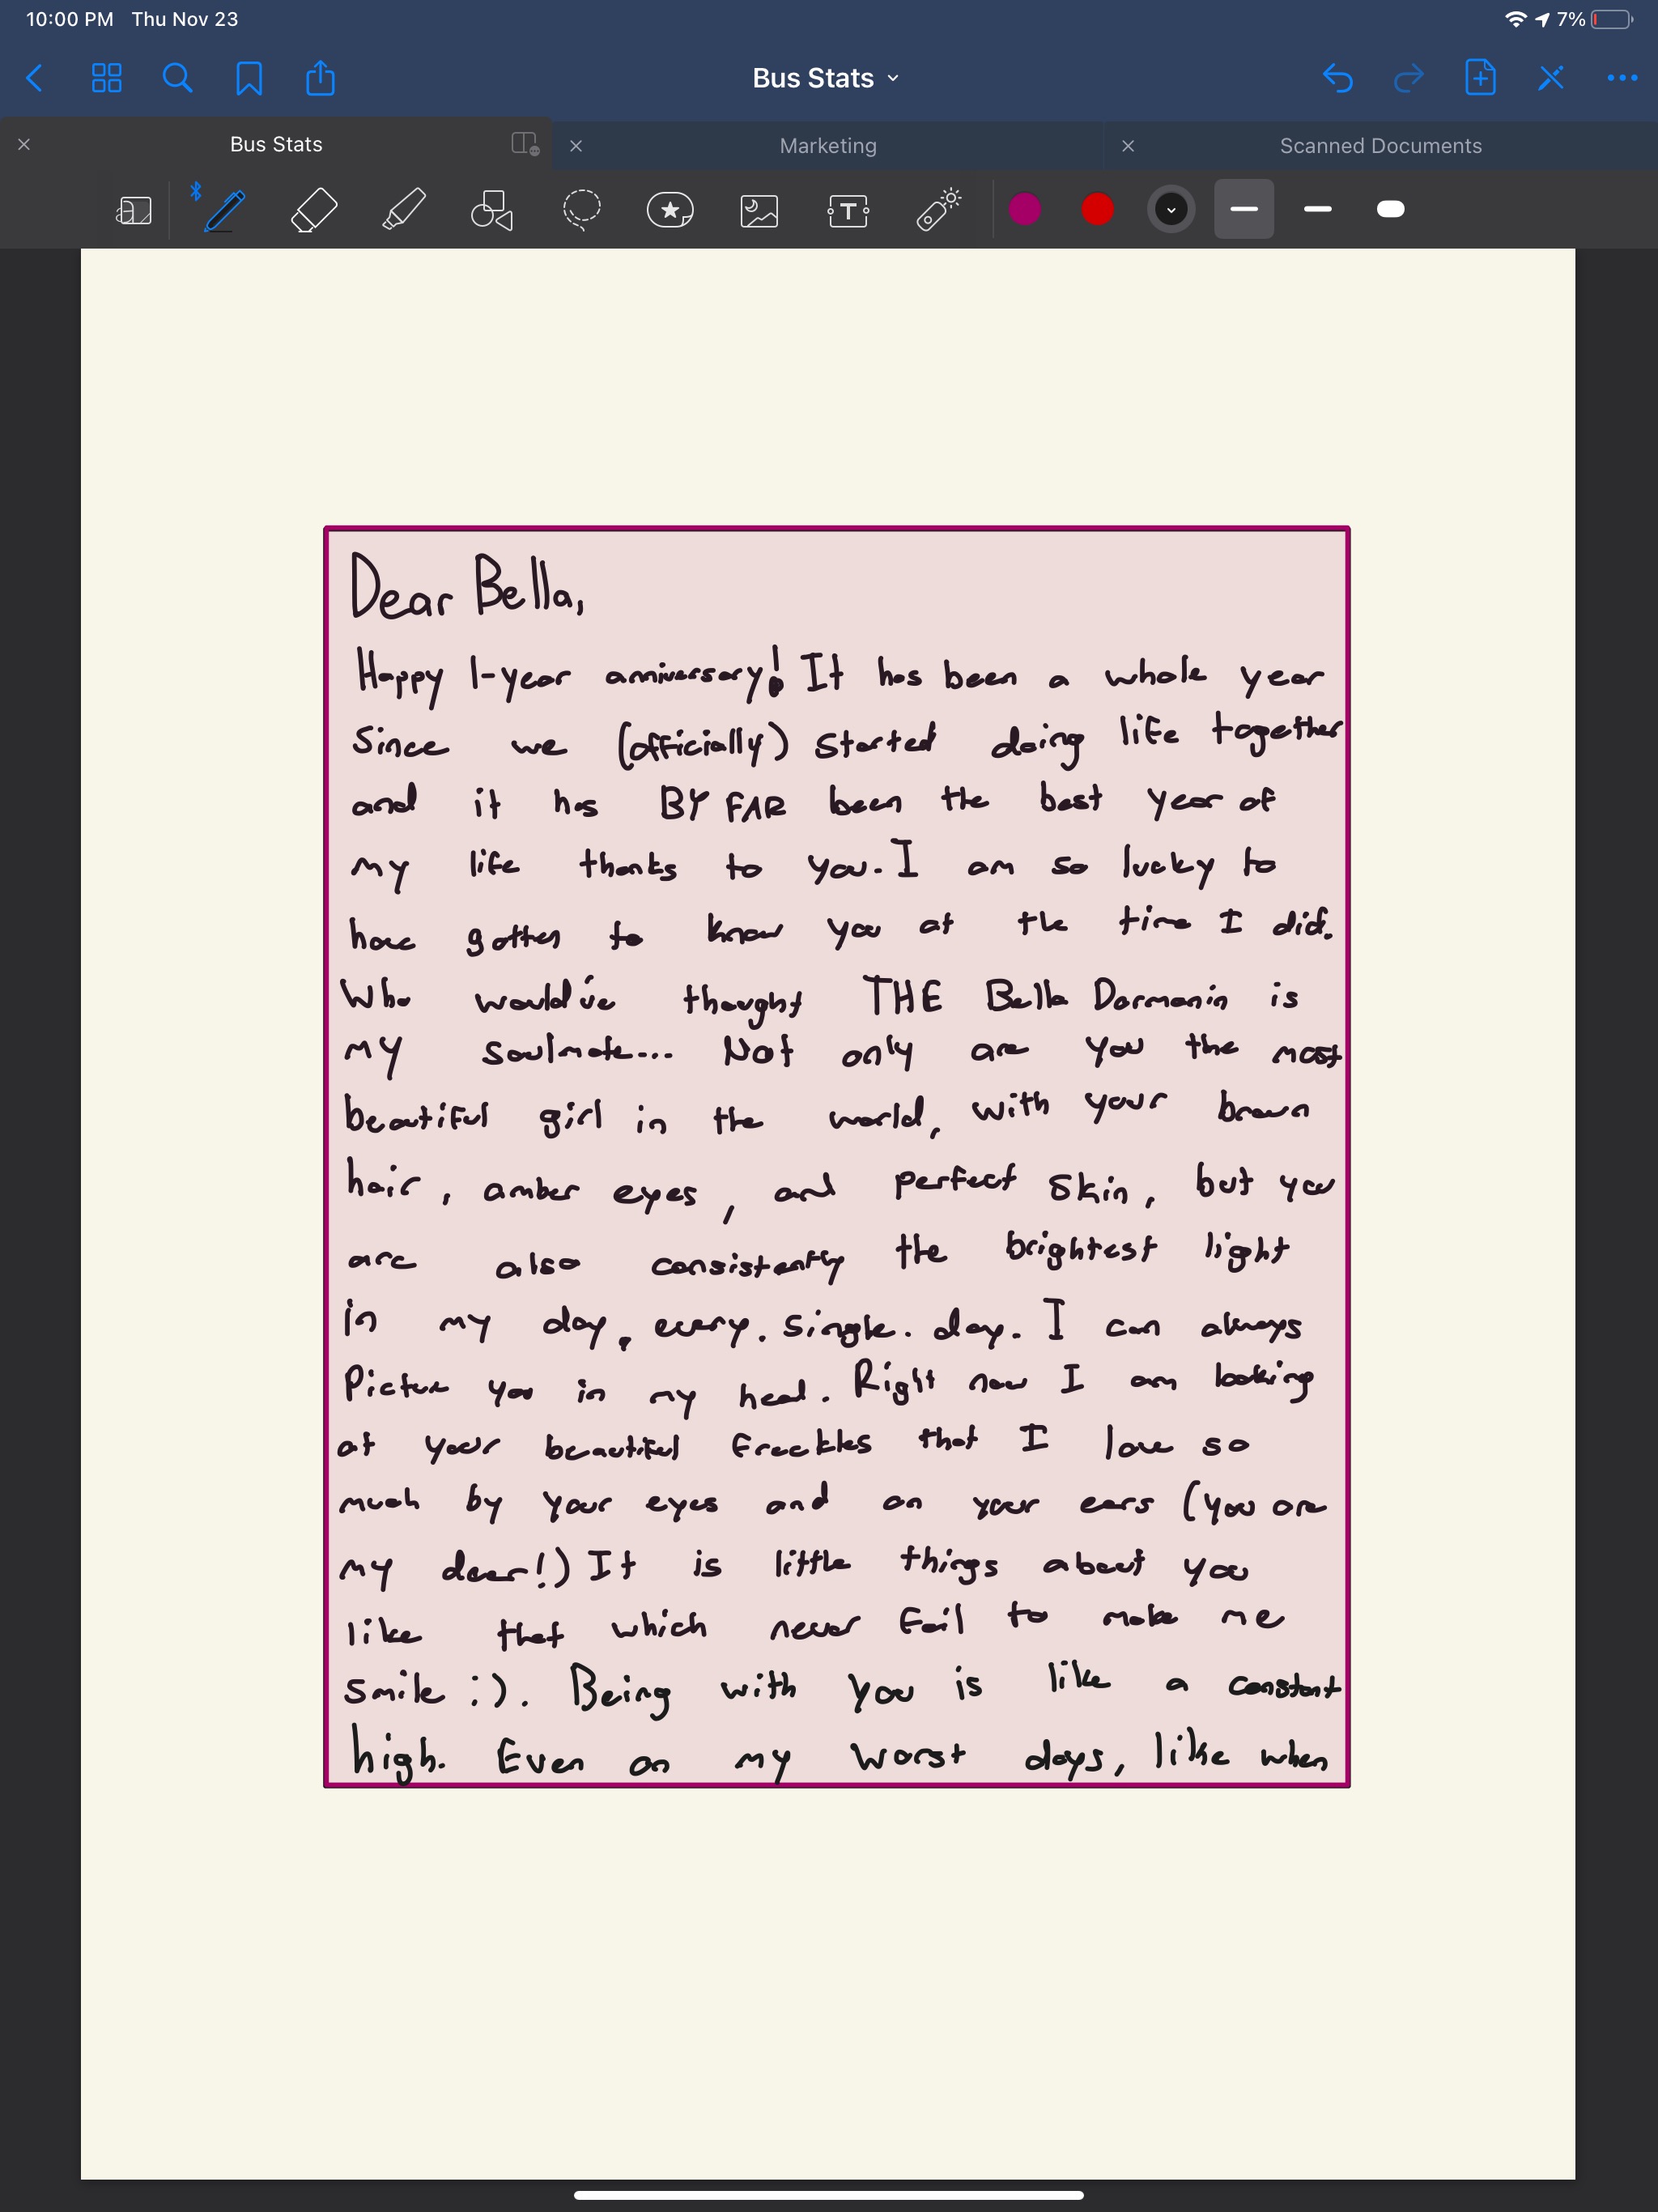 10:00 PM Thu Nov 23 7%
Bus Stats
Bus Stats Marketing Scanned Documents
T
Dear Bella,
Happy 1-year anniversary! It has been a whole year
since we (officially) started doing life together
and it has BY FAR been the best year of
my life thanks to you. I am so lucky to
have gotten to know you at the time I did.
Who would've thought THE Bella Darmanin is
my soulmate... Not only are you the most
beautiful girl in the world, with your brown
hair, amber eyes, and perfect skin, but you
are also consistently the brightest light
in my day, every. single. day. I can always
Picture you in my head. Right now I am looking
at your beautiful freckles that I love so
much by your eyes and on your ears (you are
my deer!) It is little things about you
like that which never fail to make me
smile :). Being with you is like a constant
high. Even on my worst days, like when